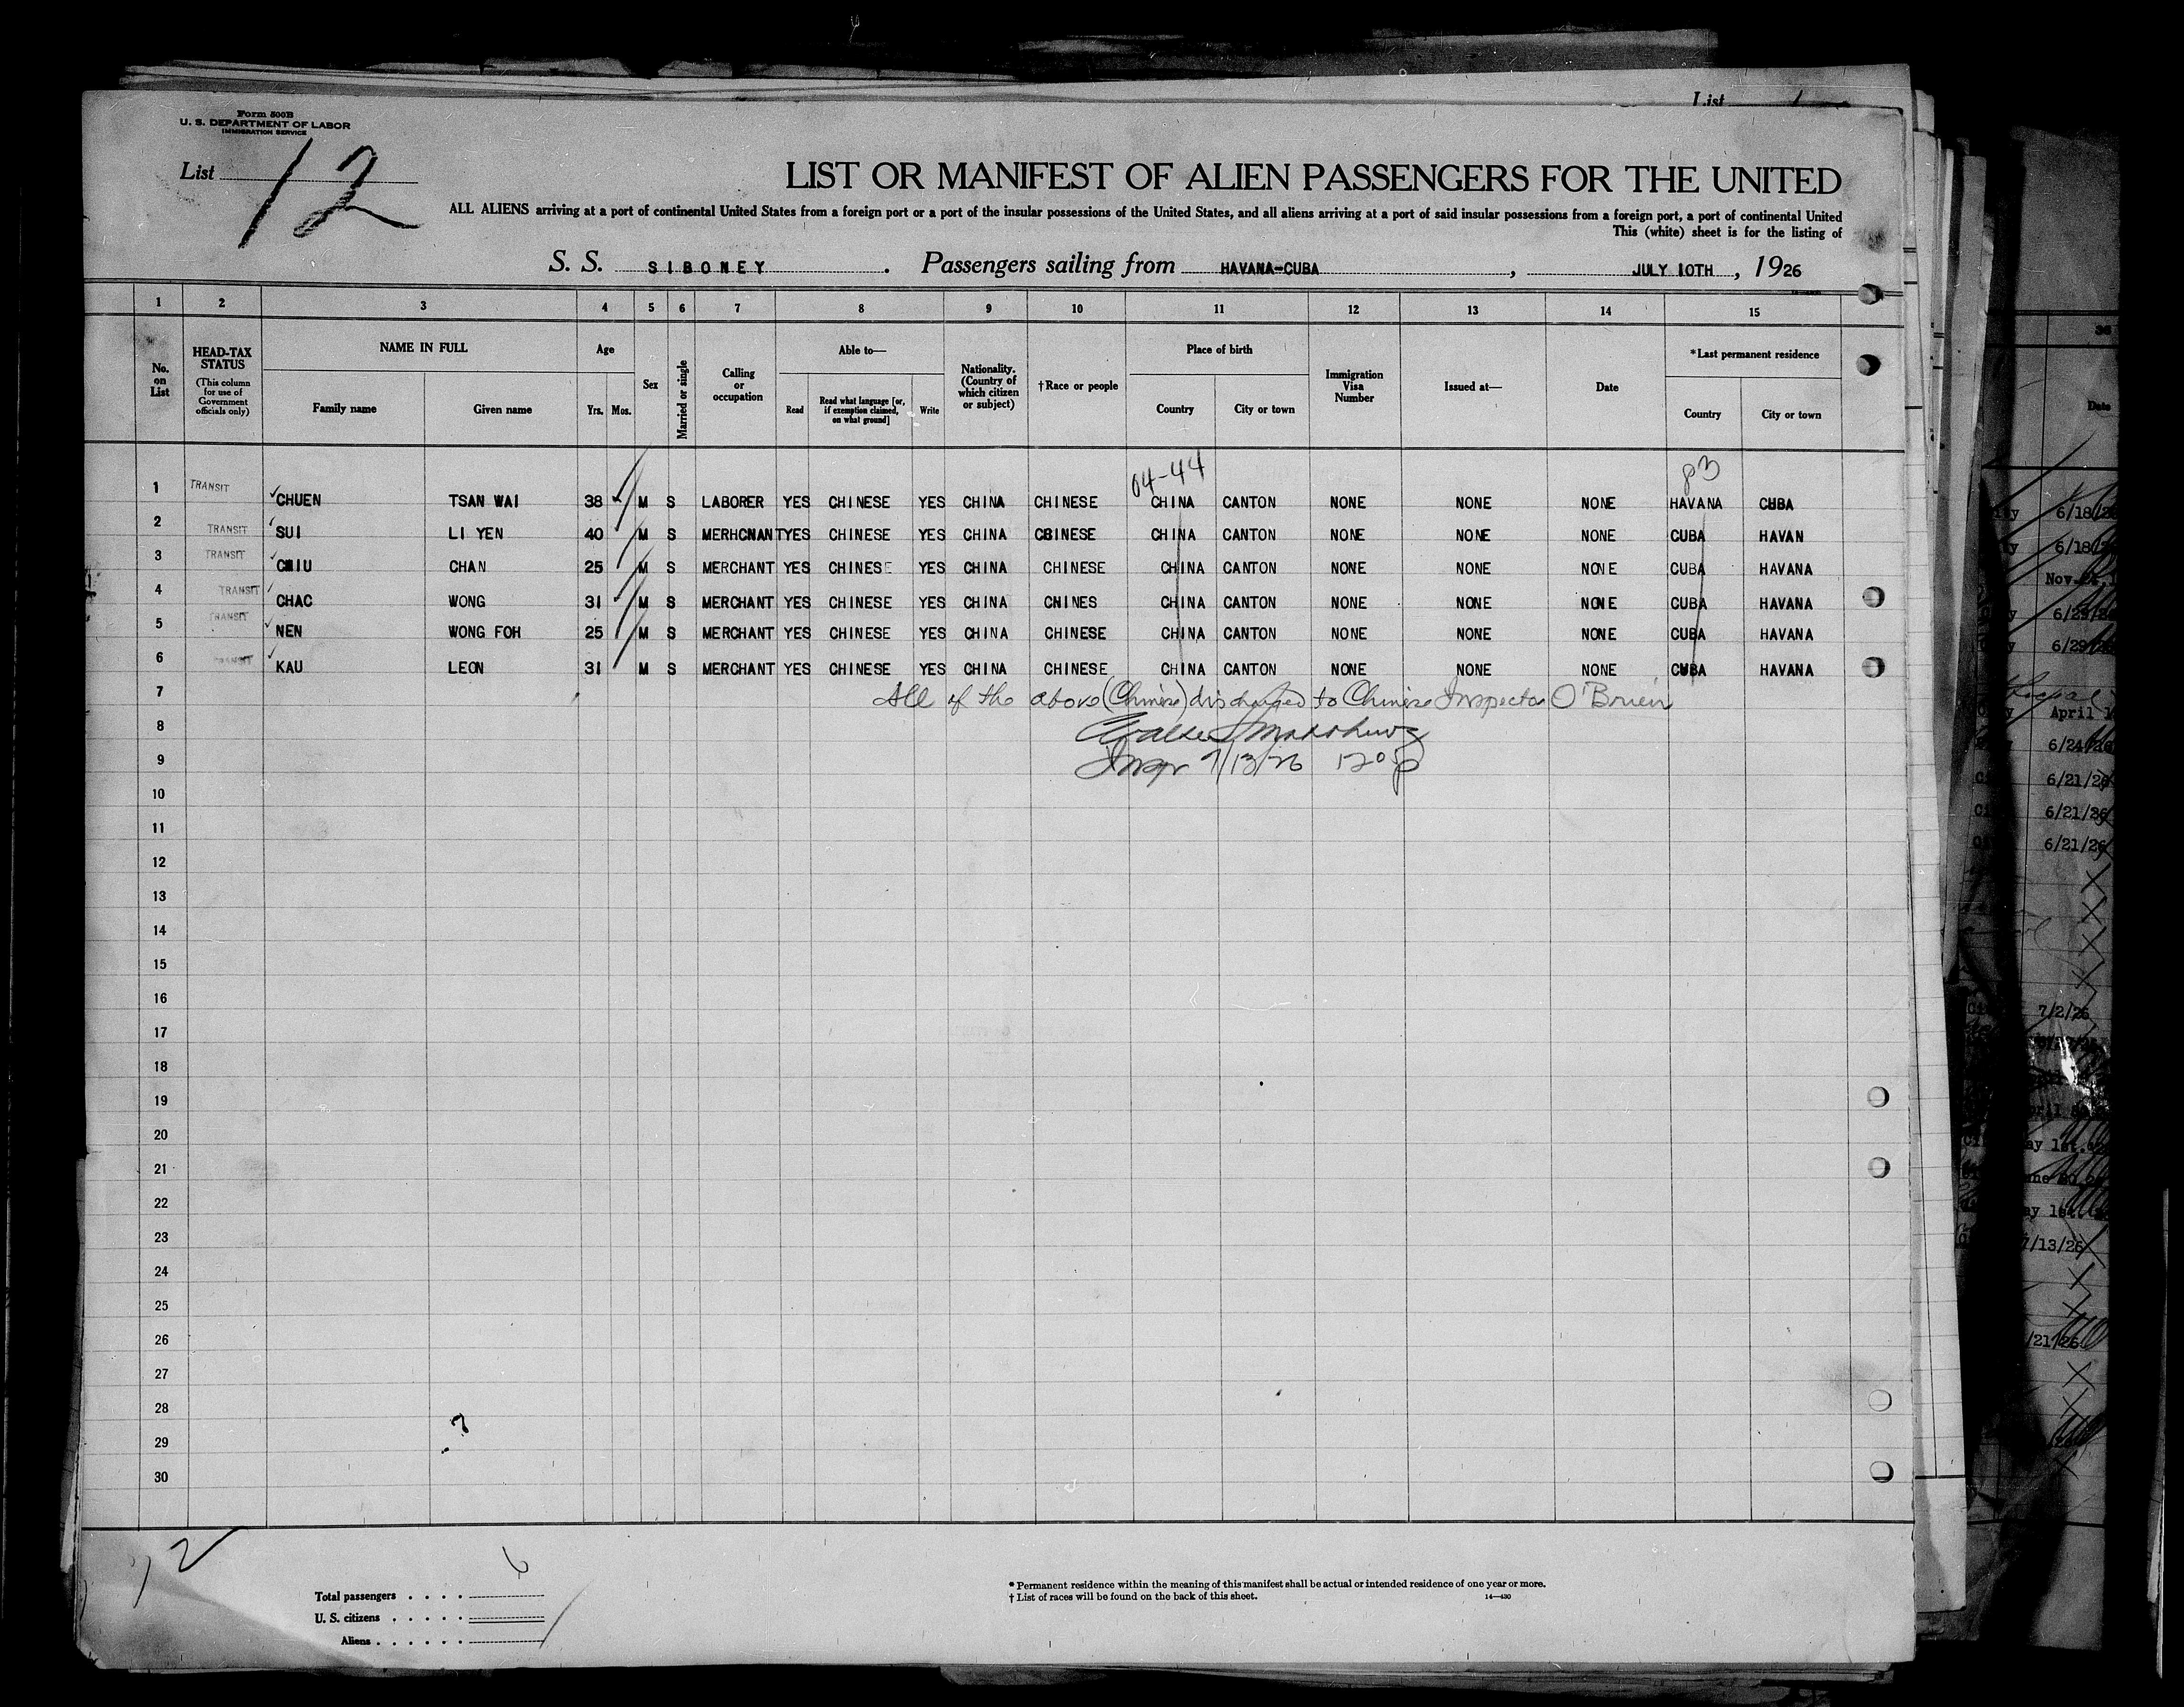 List 1
Form 500B
U. S. DEPARTMENT OF LABOR
IMMIGRATION SERVICE
List 12
LIST OR MANIFEST OF ALIEN PASSENGERS FOR THE UNITED
ALL ALIENS arriving at a port of continental United States from a foreign port or a port of the insular possessions of the United States, and all aliens arriving at a port of said insular possessions from a foreign port, a port of continental United
This (white) sheet is for the listing of
S. S. SIBONEY. Passengers sailing from HAVANA-CUBA, JULY 10TH, 1926
1 2 3 4 5 6 7 8 9 10 11 12 13 14 15
No. on List
HEAD-TAX STATUS
(This column for use of Government officials only)
NAME IN FULL
Family name Given name
Age
Yrs. Mos.
Sex
Married or single
Calling or occupation
Able to—
Read Read what language [or, if exemption claimed, on what ground] Write
Nationality. (Country of which citizen or subject)
†Race or people
Place of birth
Country City or town
Immigration Visa Number
Issued at—
Date
*Last permanent residence
Country City or town
04-44 83
1 TRANSIT CHUEN TSAN WAI 38 M S LABORER YES CHINESE YES CHINA CHINESE CHINA CANTON NONE NONE NONE HAVANA CUBA
2 TRANSIT SUI LI YEN 40 M S MERHCNANT YES CHINESE YES CHINA CBINESE CHINA CANTON NONE NONE NONE CUBA HAVAN
3 TRANSIT CHIU CHAN 25 M S MERCHANT YES CHINESE YES CHINA CHINESE CHINA CANTON NONE NONE NONE CUBA HAVANA
4 TRANSIT CHAC WONG 31 M S MERCHANT YES CHINESE YES CHINA CNINES CHINA CANTON NONE NONE NONE CUBA HAVANA
5 TRANSIT NEN WONG FOH 25 M S MERCHANT YES CHINESE YES CHINA CHINESE CHINA CANTON NONE NONE NONE CUBA HAVANA
6 TRANSIT KAU LEON 31 M S MERCHANT YES CHINESE YES CHINA CHINESE CHINA CANTON NONE NONE NONE CUBA HAVANA
7 All of the above (Chinese) discharged to Chinese Inspector O'Brien
8
9 Inspr 7/13/26
10
11
12
13
14
15
16
17
18
19
20
21
22
23
24
25
26
27
28
29
30
12
6
Total passengers
U. S. citizens
Aliens
* Permanent residence within the meaning of this manifest shall be actual or intended residence of one year or more.
† List of races will be found on the back of this sheet.
14—430
36
Date
6/18/2
6/18/
6/29/2
April 1
6/24/26
6/21/26
6/21/26
6/21/26
7/2/26
7/13/26
/21/26